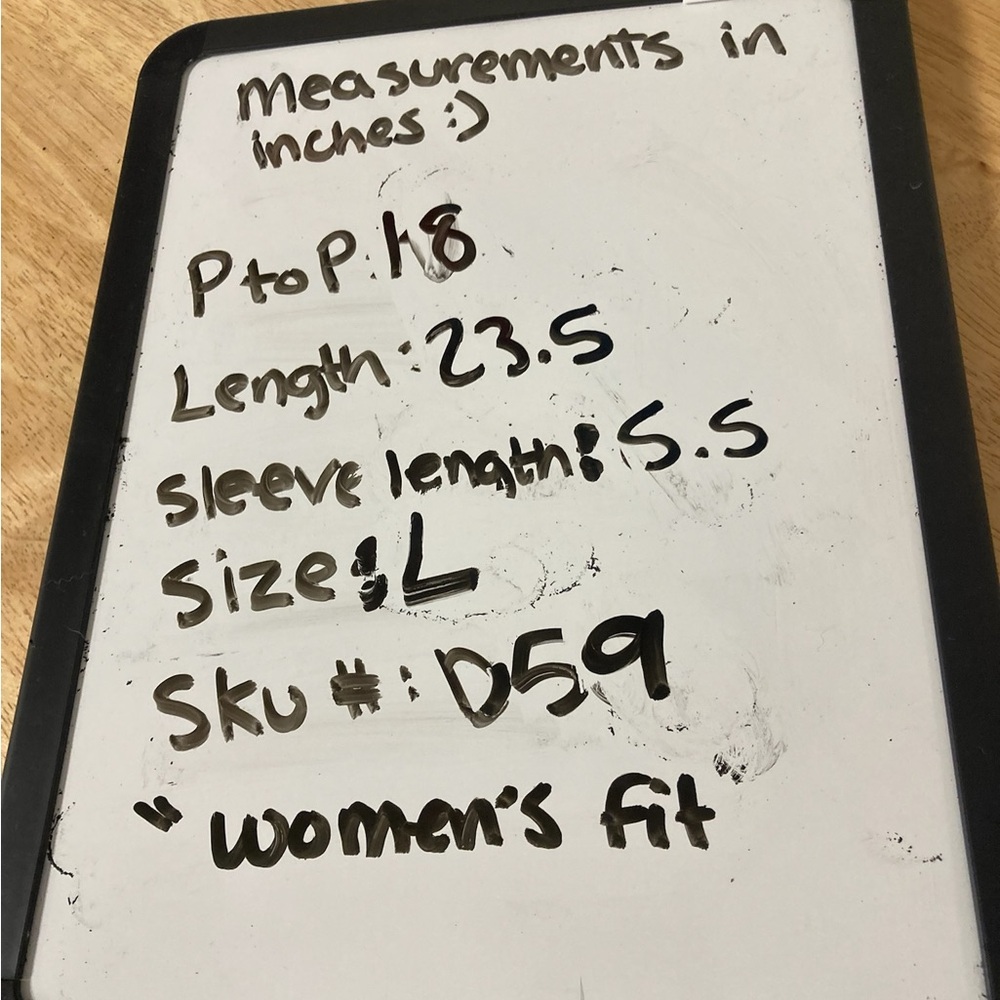 Measurements in
inches :)
P to P: 18
Length: 23.5
Sleeve length: 5.5
Size: L
Sku #: D59
"women's fit"